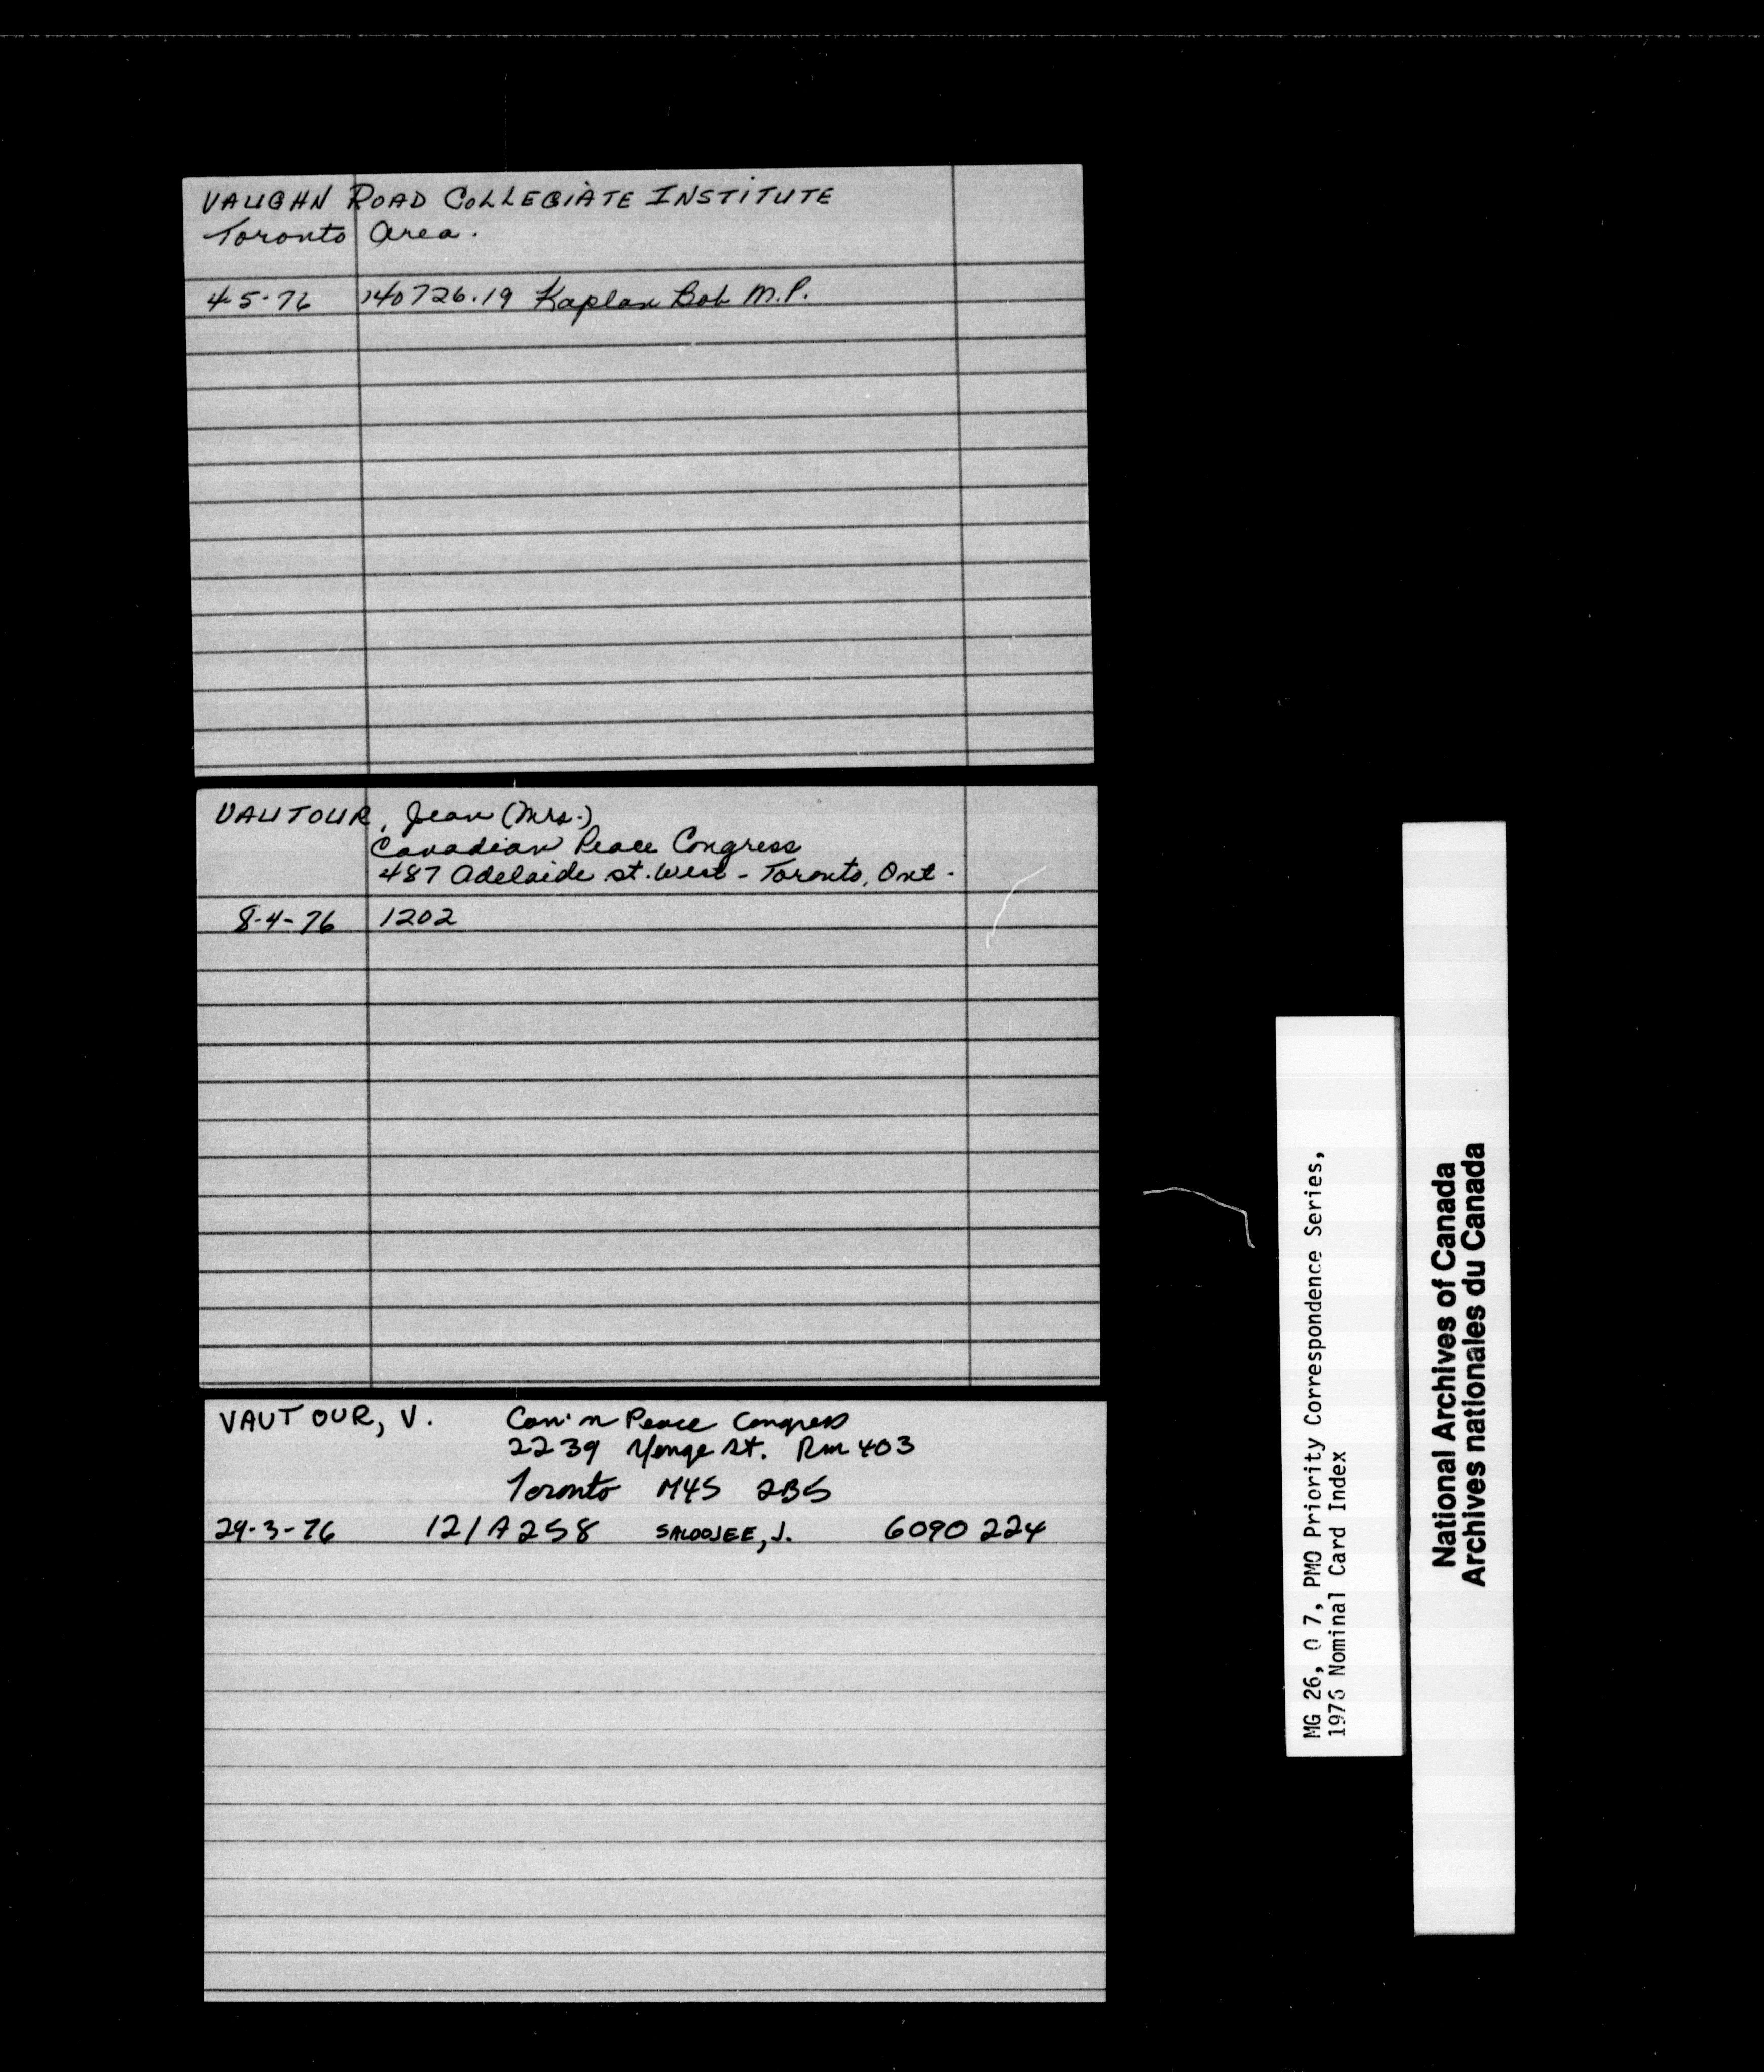 VAUGHN ROAD COLLEGIATE INSTITUTE
Toronto Area.
4-5-76 140726.19 Kaplan Bob M.P.
VAUTOUR, Jean (Mrs.)
Canadian Peace Congress
487 Adelaide St. West - Toronto, Ont.
8-4-76 1202
VAUTOUR, V. Can'n Peace Congress
2239 Yonge St. Rm 403
Toronto M4S 2B5
29-3-76 12/A258 SALOOJEE, J. 6090 224
MG 26, O 7, PMO Priority Correspondence Series,
1976 Nominal Card Index
National Archives of Canada
Archives nationales du Canada